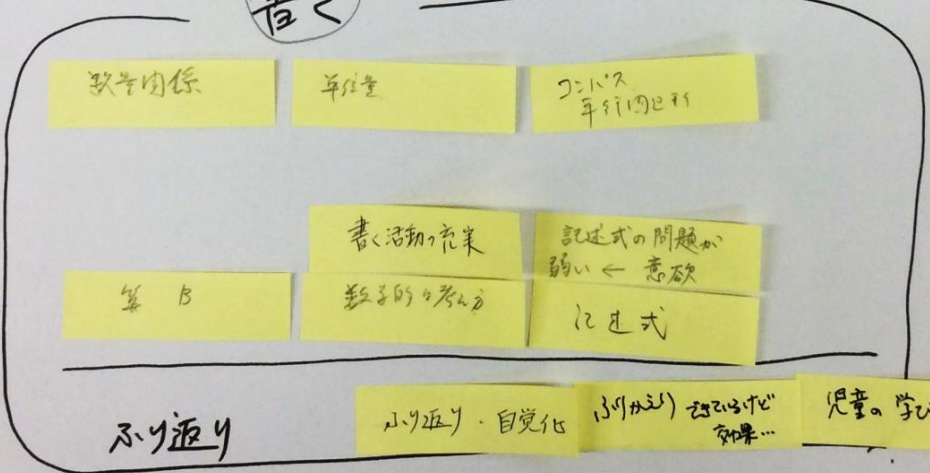 書く
数量関係
単位量
コンパス
平行四辺形
書く活動の充実
記述式の問題が
弱い ← 意欲
算 B
数学的な考え方
記述式
ふり返り
ふり返り・自覚化
ふりかえり できているけど
効果…
児童の 学び